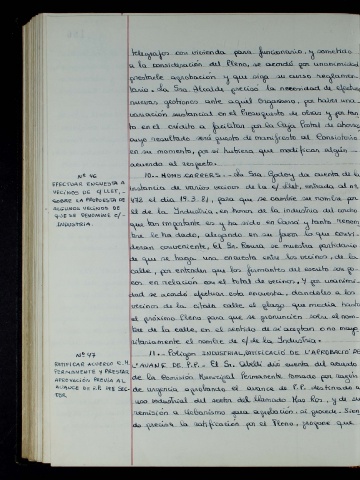 telegrafos con vivienda para funcionario, y sometido
a la consideración del Pleno, se acordó por unanimidad
prestarle aprobación y que siga su curso reglamen-
tario. La Sra. Alcalde precisa la necesidad de efectuar
nuevas gestiones ante aquel Organismo, por haber una
variación sustancial en el Presupuesto de obras y por tan-
to en el crédito a facilitar por la Caja Postal de ahorros
cuyo resultado será puesto de manifiesto al Consistorio
en su momento, por si hubiese que modificar algún
acuerdo al respecto.
Nº 46
EFECTUAR ENCUESTA A
VECINOS DE C/LLET,
SOBRE LA PROPUESTA DE
ALGUNOS VECINOS DE
QUE SE DENOMINE C/-
INDUSTRIA.
10.- NOMS CARRERS.- La Sra. Godoy da cuenta de la
instancia de varios vecinos de la c/ Llet, entrada al nº
472 el día 19.3.81, para que se cambie su nombre por
el de la Industria, en honor de la industria del corcho
que tan importante es y ha sido en Cassà y tanto renom-
bre le ha dado, alegando en su favor lo que consi-
deran conveniente. El Sr. Roura se muestra partidario
de que se haga una encuesta entre los vecinos de la
calle, por entender que los firmantes del escrito son po-
cos en relación con el total de vecinos. Y por unanimi-
dad se acordó efectuar esta encuesta, dándoles a los
vecinos de la citada calle, el plazo que media hasta
el próximo Pleno para que se pronuncien sobre el nom-
bre de la calle, en el sentido de si aceptan o no mayo-
ritariamente el nombre de c/ de la Industria.
Nº 47
RATIFICAR ACUERDO C.M.
PERMANENTE Y PRESTAR
APROVACIÓN PREVIA AL
AVANCE DE P.P. DEL SEC-
TOR.
11.- POLIGON INDUSTRIAL, RATIFICACIÓ DE L'APROBACIÓ DE
L'AVANÇ DE P.P. El Sr. dió cuenta del acuerdo
de la Comisión Municipal Permanente tomado por razón
de urgencia aprobando el avance de P.P. destinado a
uso industrial del sector del llamado Mas Ros, y de su
remisión a Urbanismo para aprobación si procede. Siendo
de precisa la ratificación por el Pleno, propone que